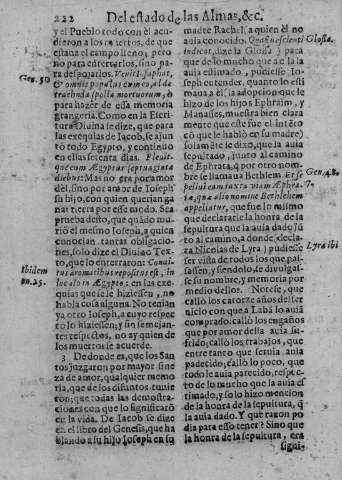 222 Del estado de las Almas, &c.
y el Pueblo todo con èl acu-
dieron a los muertos, de que
estaua el campo lleno; pero
no para enterrarlos, sino pa-
ra despojarlos. Venit Iosaphat,
Gen. 50
& omnis populus cum eo, ad de
trahenda spolia mortuorum, è
para hazer de essa memoria
grangeria. Como en la Escri
tura Diuina se dize, que para
las exequias de Iacob, se ajun
tò todo Egypto, y continuò
en ellas setenta dias. Fleuit-
que eum Ægyptus septuaginta
diebus: Mas no era por amor
dèl, sino por amor de Ioseph
su hijo, con quien querian ga
nar tierra por este modo. Sea
prueba desto, que quãdo mu-
riò el mesmo Ioseph, a quien
conocian tantas obligacio-
nes, solo dize el Diuino Tex-
to, que lo enterraron: Condi-
Ibidem
nn. 25.
tus aromatibus repositus est, in
loculo in Ægypto: en las exe-
quias que se le hiziessen, no
habla cosa alguna. No tenian
ya otro Ioseph, a cuyo respec
to lo hiziessen; y sin semejan-
tes respectos, no ay quien de
los muertos se acuerde.
3 De donde es, que los San
tos juzgaron por mayor fine
za de amor, qualquier memo
ria, que de los difuntos tuuie
ron; que todas las demostra-
ciones con que lo significarõ
en la vida. De Iacob se dize
en el libro del Genesis, que ha
blando a su hijo Ioseph en su
madre Rachel, a quien èl no
auia conocido. Quasi nescienti
Glossa.
indicat, dize la Glossa; y para
que de lo mucho que a ella la
auia estimado, pudiesse Io-
seph entender, quanto lo esti
maua a èl, la adopcion que le
hizo de los hijos Ephraim, y
Manasses, muestra bien clara
mente que este fue el intẽto
cõ que le hablò en su madre)
solamẽte le dixo, que la auia
sepultado, junto al camino
de Ephrata, q̃ por otro nom-
bre se llamaua Bethlem. Et se
Gen. 48.
peliui eam iuxta viam Æphra
7.
ta, quæ alio nomine Bethlehem
appellatur, que fue lo mismo
que declararle la honra de la
sepultura que la auia dado jũ
to al camino, a donde, (decla-
ra Nicolas de Lyra) pudiesse
Lyra ibi
ser vista de todos los que pas-
sassen, y siendolo, se divulgas-
se su nombre, y memoria por
medio dellos. Notese, que
callò los catorze años del ser
uicio con que a Labã lo auia
comprado: los engaños
que por amor della auia su-
frido; callò los trabajos, que
entre tanto que seruia auia
padecido, callò lo poco, que
todo le auia parecido, respec-
to de lo mucho que la auia es
timado, y solo hizo mencion
de la honra de la sepultura, q̃
la auia dado. Y què razon po
dia para esso tener? Sino que
la honra de la sepultura, era
signi-